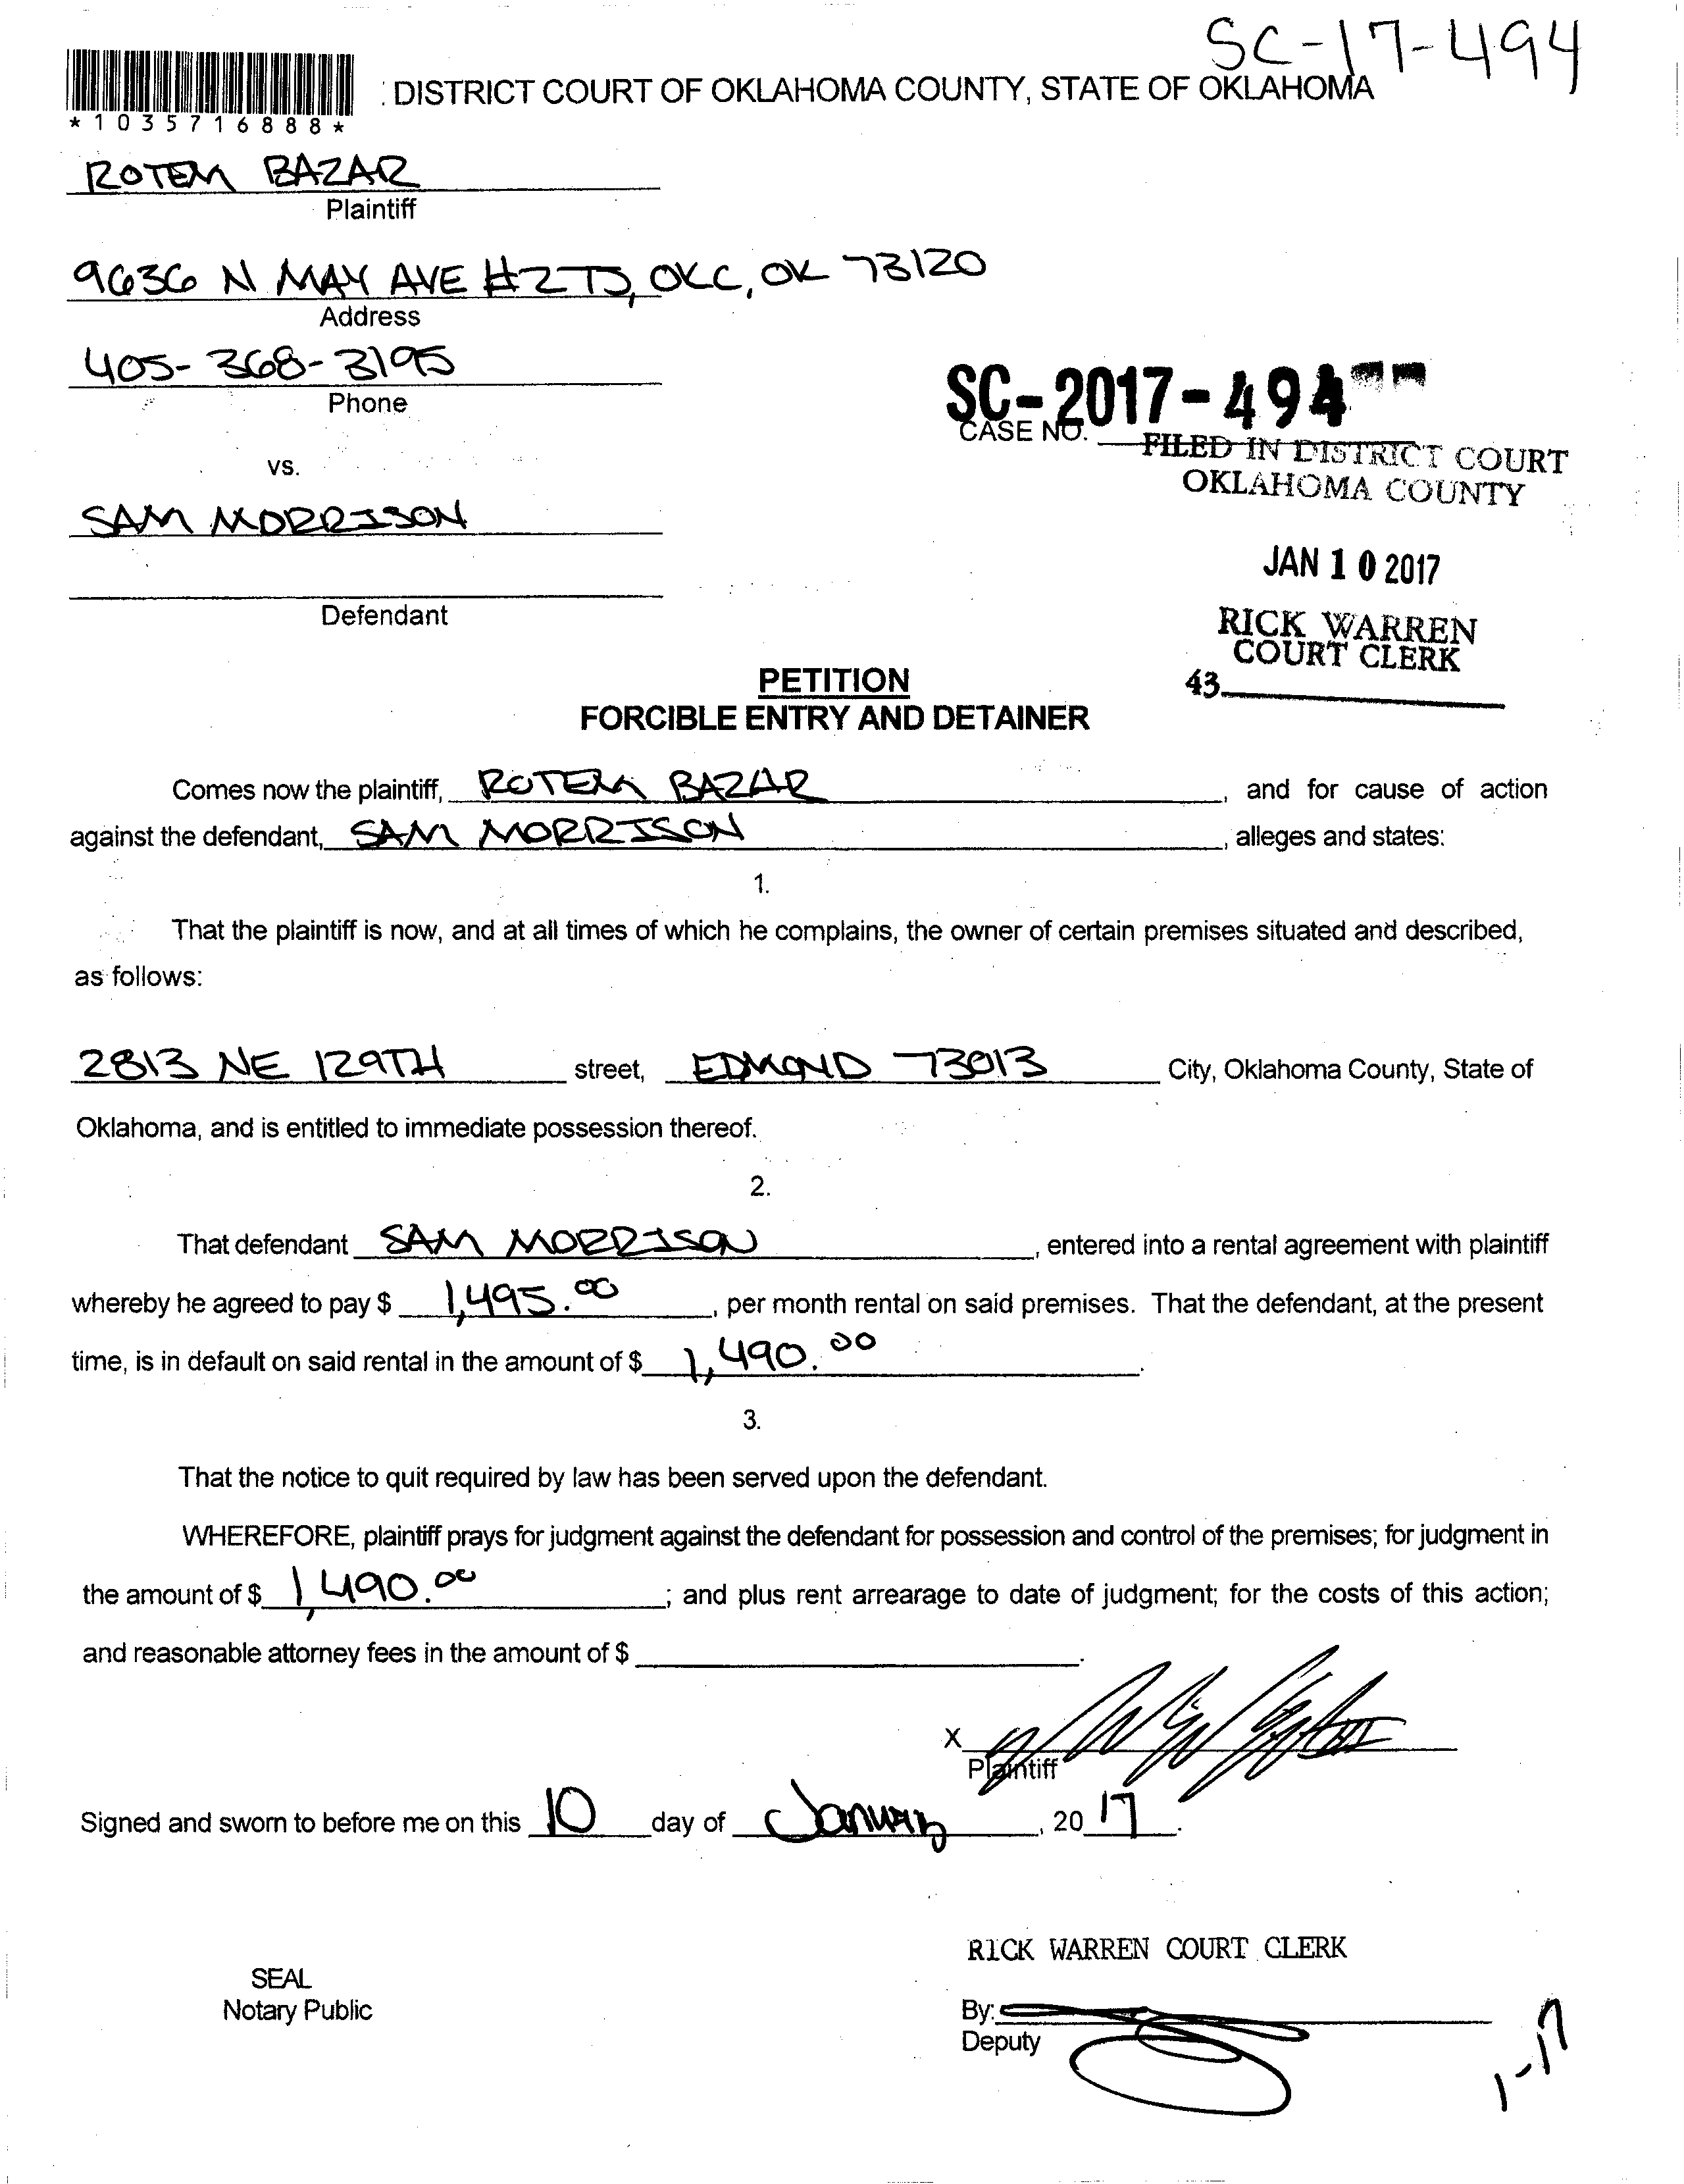 SC-17-494
: DISTRICT COURT OF OKLAHOMA COUNTY, STATE OF OKLAHOMA
*1035716888*
ROTEM BAZAR
Plaintiff
9636 N MAY AVE #275, OKC, OK 73120
Address
405-368-3195
Phone
SC-2017-494
CASE NO.
FILED IN DISTRICT COURT
OKLAHOMA COUNTY
vs.
SAM MORRISON
JAN 10 2017
Defendant
RICK WARREN
COURT CLERK
43
PETITION
FORCIBLE ENTRY AND DETAINER
Comes now the plaintiff, ROTEM BAZAR, and for cause of action
against the defendant, SAM MORRISON, alleges and states:
1.
That the plaintiff is now, and at all times of which he complains, the owner of certain premises situated and described,
as follows:
2813 NE 129TH street, EDMOND 73013 City, Oklahoma County, State of
Oklahoma, and is entitled to immediate possession thereof.
2.
That defendant SAM MORRISON, entered into a rental agreement with plaintiff
whereby he agreed to pay $ 1,495.00, per month rental on said premises. That the defendant, at the present
time, is in default on said rental in the amount of $ 1,490.00.
3.
That the notice to quit required by law has been served upon the defendant.
WHEREFORE, plaintiff prays for judgment against the defendant for possession and control of the premises; for judgment in
the amount of $ 1,490.00; and plus rent arrearage to date of judgment; for the costs of this action;
and reasonable attorney fees in the amount of $ .
X
Plaintiff
Signed and sworn to before me on this 10 day of January, 2017.
RICK WARREN COURT CLERK
SEAL
Notary Public
By:
Deputy
1-17